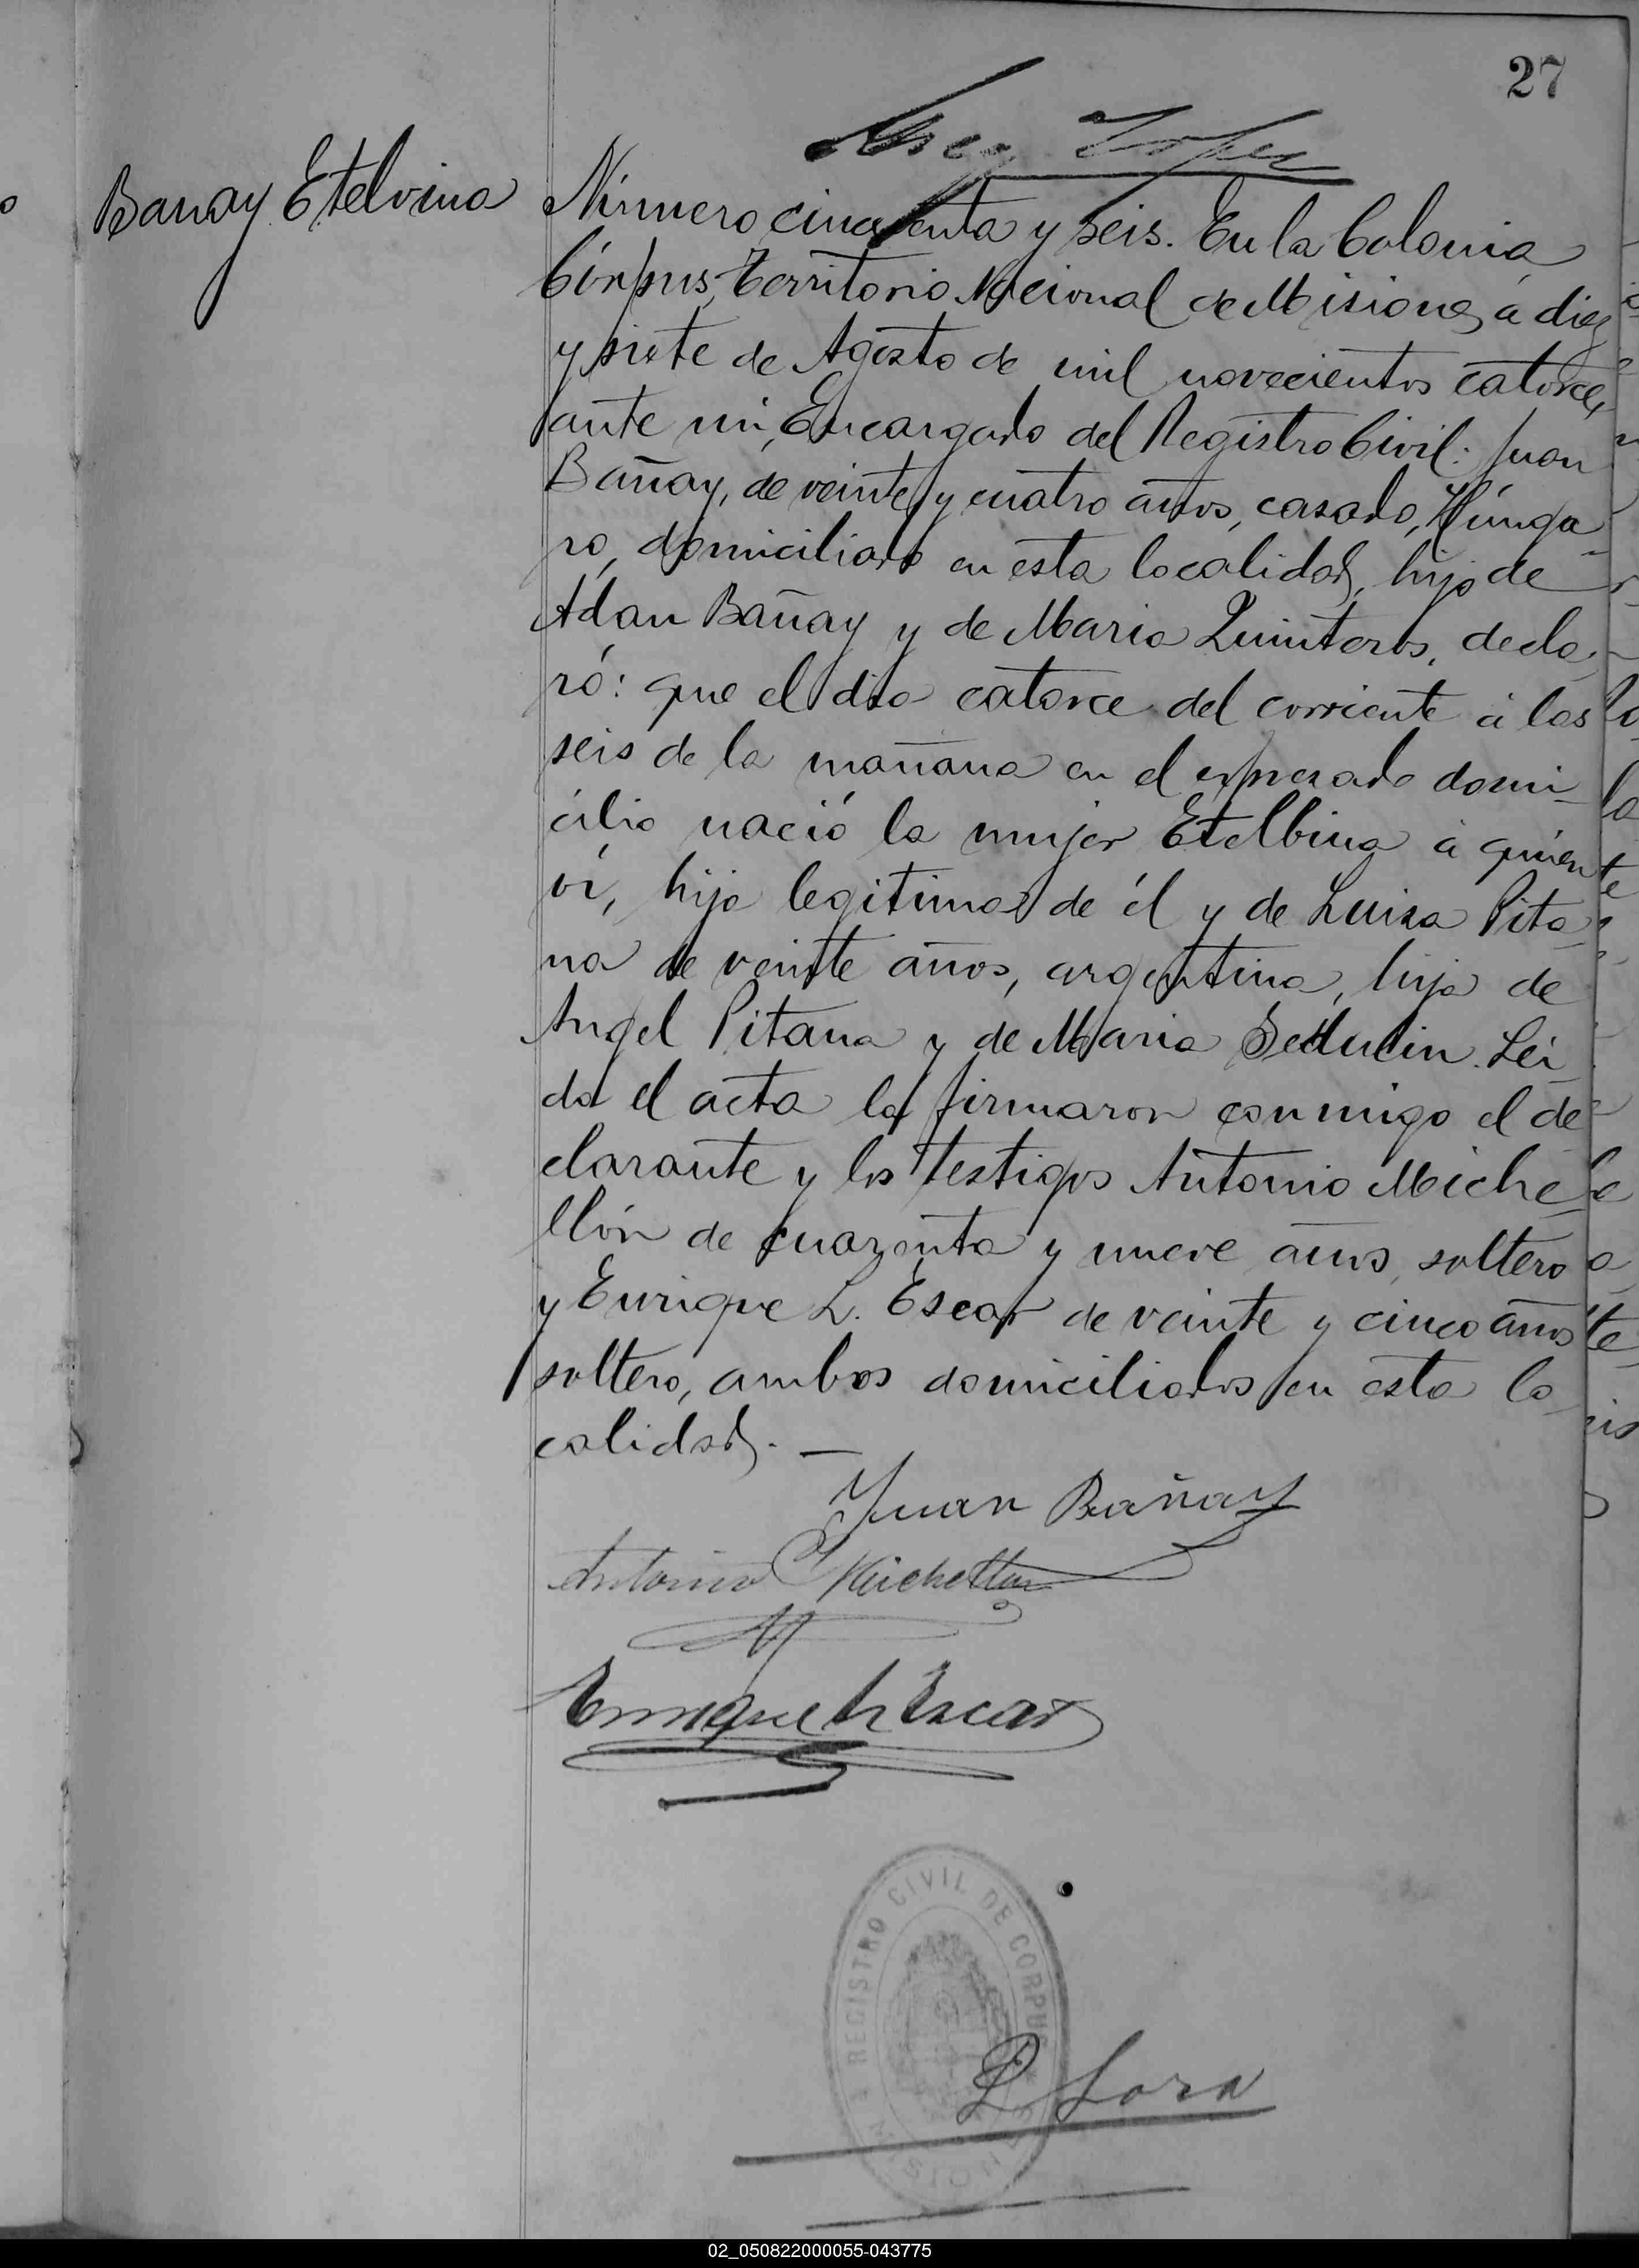 27
Lopez
Banay Etelvina
Número cincuenta y seis. En la Colonia
Córpus, Territorio Nacional de Misiones, á diez
y siete de Agosto de mil novecientos catorce,
ante mi, Encargado del Registro Civil: Juan
Bañay, de veinte y cuatro años, casado, Húnga-
ro, domiciliado en esta localidad, hijo de
Adan Bañay y de Maria Quinteros, decla-
ró: que el dia catorce del corriente á las
seis de la mañana en el expresado domi-
cilio nació la mujer Etelbina á quien
ví, hija legitima de él y de Luisa Pita-
na de veinte años, argentina, hija de
Angel Pitana y de Maria Lei-
da el acta la firmaron conmigo el de-
clarante y los testigos Antonio Miche-
llón de cuarenta y nueve años, soltero
y Enrique L. Escar de veinte y cinco años
soltero, ambos domiciliados en esta lo-
calidad. —
Juan Bañay
Antonio Michellon
Enrique L. Escar
REGISTRO CIVIL DE CORPUS
MISIONES
P. Lora
02_050822000055-043775